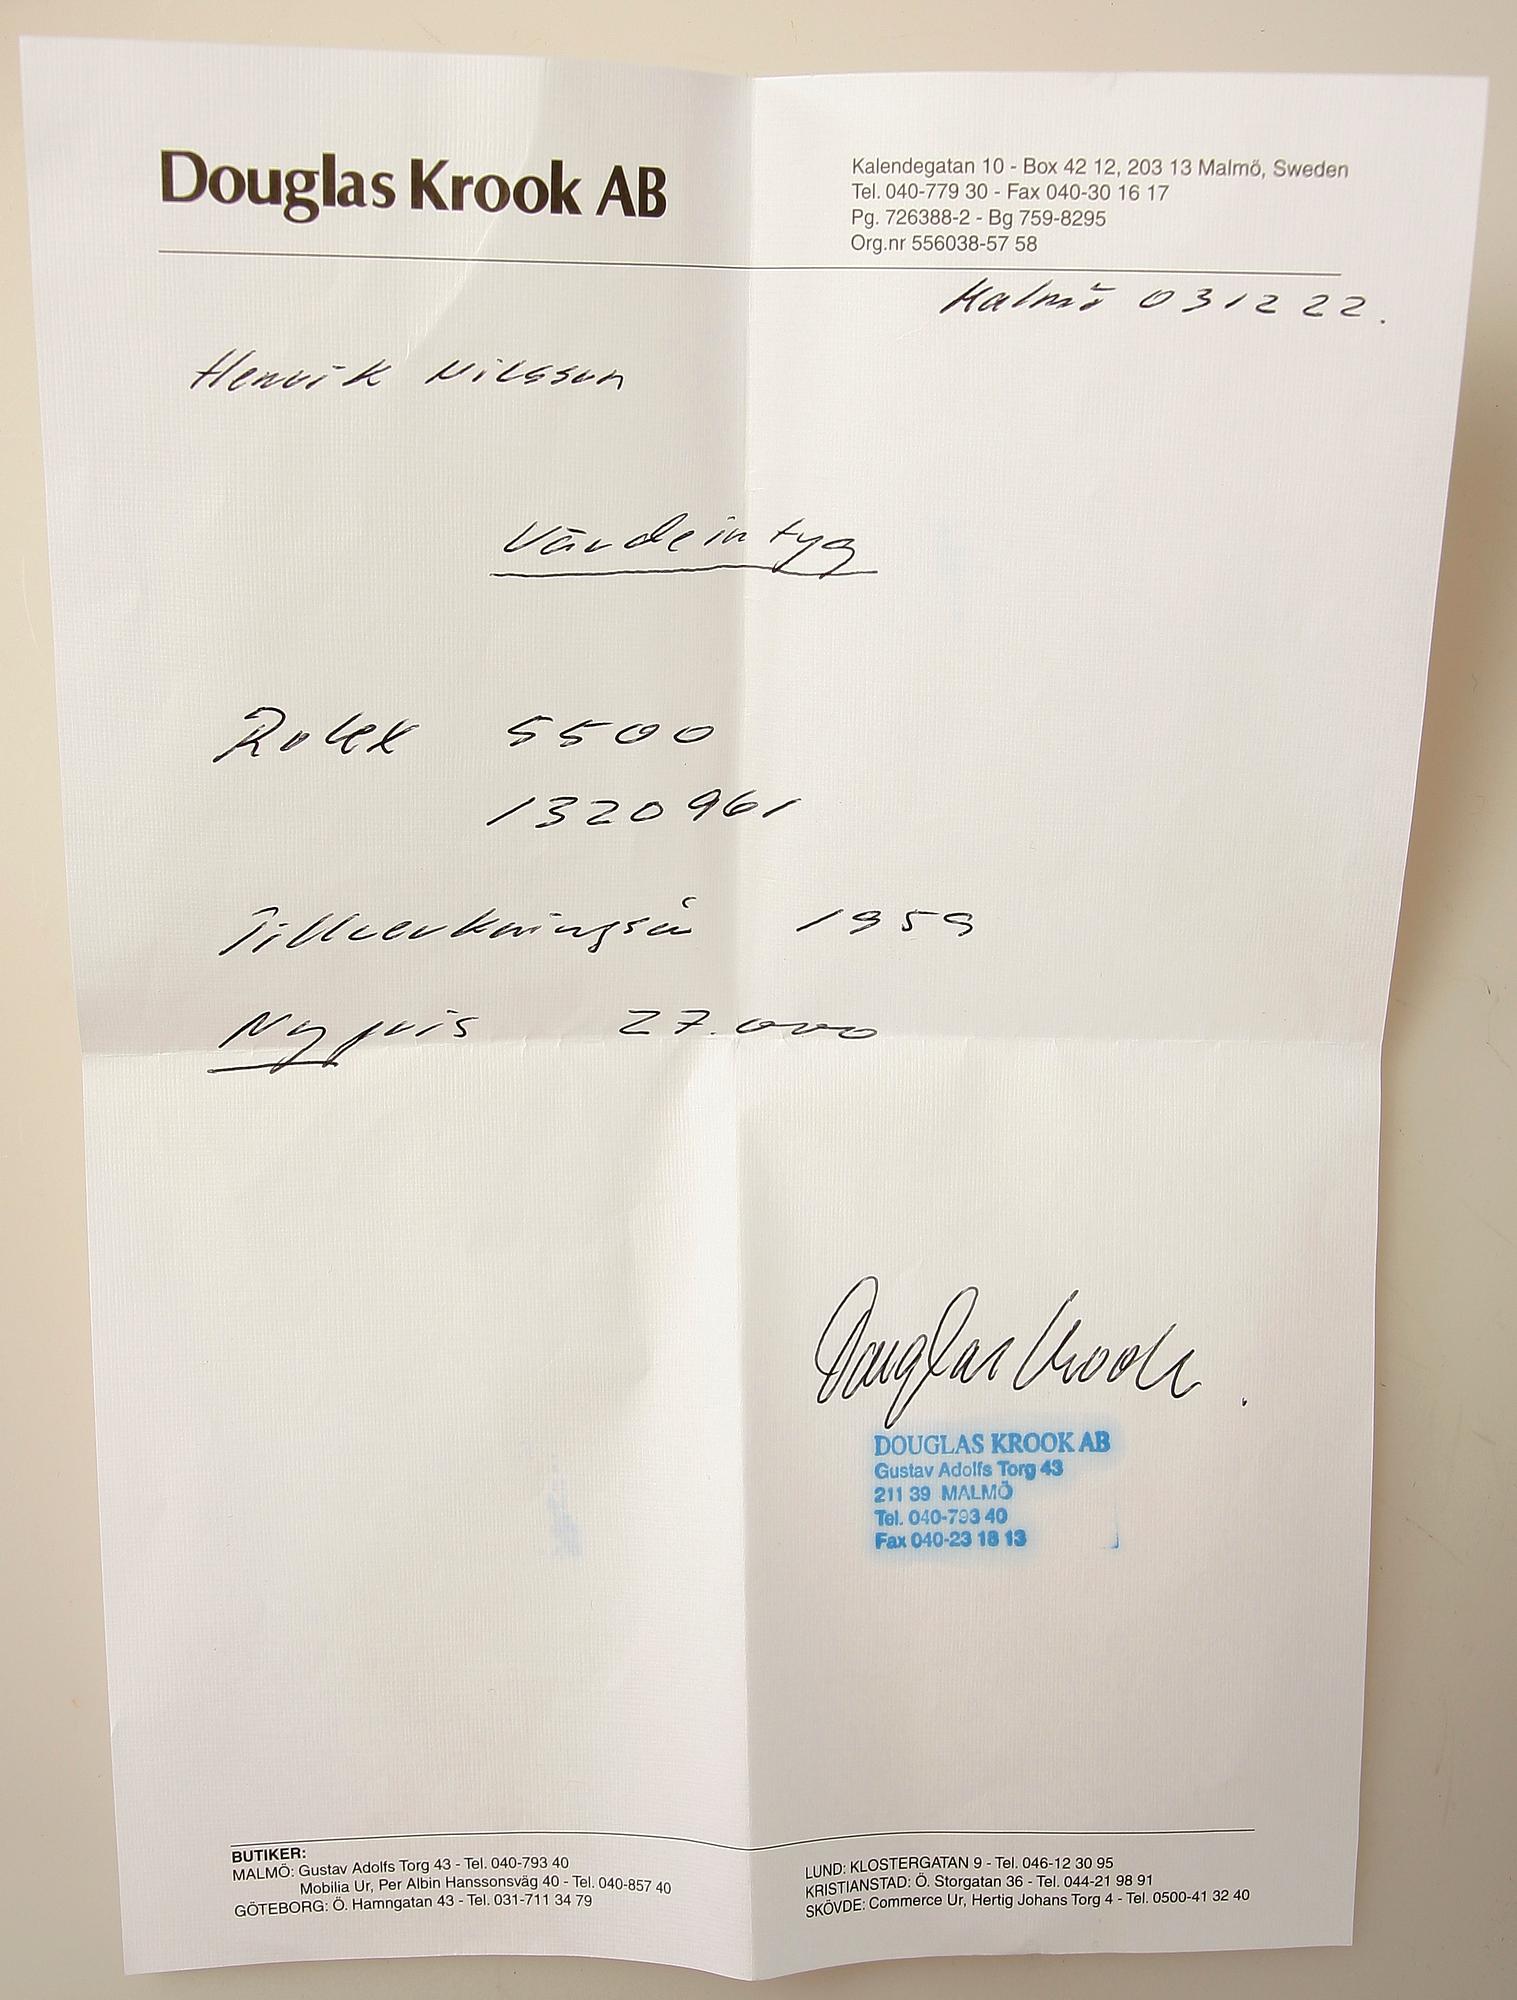 Douglas Krook AB
Kalendegatan 10 - Box 42 12, 203 13 Malmö, Sweden
Tel. 040-779 30 - Fax 040-30 16 17
Pg. 726388-2 - Bg 759-8295
Org.nr 556038-57 58
Malmö 031222.
Henrik Nilsson
Värdeintyg
Rolex 5500
1320961
Tillverkningsår 1959
Nypris 27.000
Douglas Krook.
DOUGLAS KROOK AB
Gustav Adolfs Torg 43
211 39 MALMÖ
Tel. 040-793 40
Fax 040-23 18 13
BUTIKER:
MALMÖ: Gustav Adolfs Torg 43 - Tel. 040-793 40
Mobilia Ur, Per Albin Hanssonsväg 40 - Tel. 040-857 40
GÖTEBORG: Ö. Hamngatan 43 - Tel. 031-711 34 79
LUND: KLOSTERGATAN 9 - Tel. 046-12 30 95
KRISTIANSTAD: Ö. Storgatan 36 - Tel. 044-21 98 91
SKÖVDE: Commerce Ur, Hertig Johans Torg 4 - Tel. 0500-41 32 40